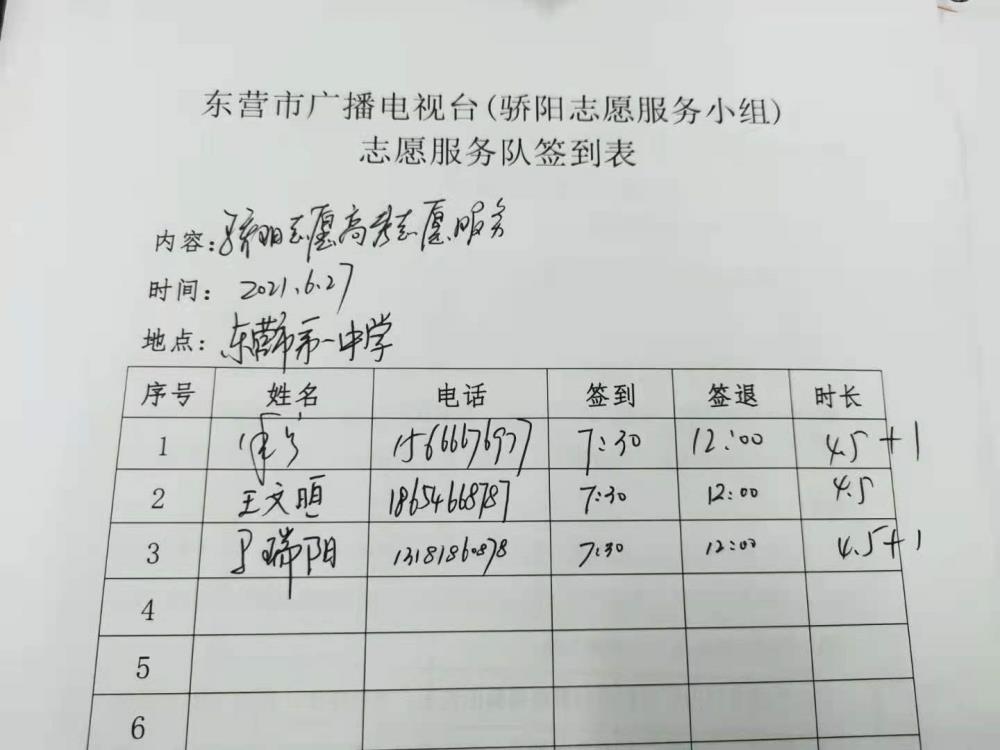 东营市广播电视台(骄阳志愿服务小组)
志愿服务队签到表
内容:骄阳志愿高考志愿服务
时间: 2021.6.27
地点: 东营市第一中学
序号 姓名 电话 签到 签退 时长
1 15666676977 7:30 12:00 4.5+1
2 王文晅 18654668787 7:30 12:00 4.5
3 瑞阳 13181860878 7:30 12:00 4.5+1
4
5
6